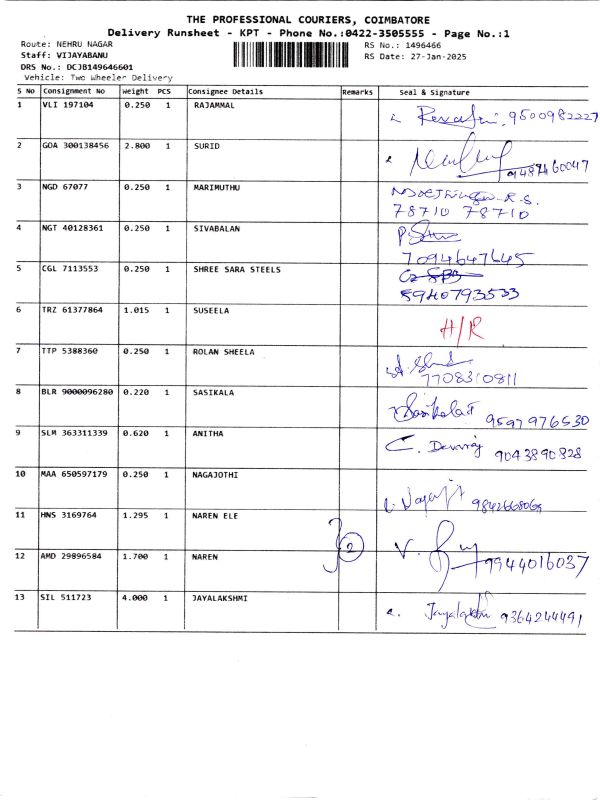 THE PROFESSIONAL COURIERS, COIMBATORE
Delivery Runsheet - KPT - Phone No.:0422-3505555 - Page No.:1
Route: NEHRU NAGAR RS No.: 1496466
Staff: VIJAYABANU RS Date: 27-Jan-2025
DRS No.: DCJB149646601
Vehicle: Two Wheeler Delivery
S No Consignment No Weight PCS Consignee Details Remarks Seal & Signature
1 VLI 197104 0.250 1 RAJAMMAL
9500982227
2 GOA 300138456 2.800 1 SURID
9487460047
3 NGD 67077 0.250 1 MARIMUTHU
78710 78710
4 NGT 40128361 0.250 1 SIVABALAN
7094647645
5 CGL 7113553 0.250 1 SHREE SARA STEELS
5940793533
6 TRZ 61377864 1.015 1 SUSEELA
H/R
7 TTP 5388360 0.250 1 ROLAN SHEELA
7708310811
8 BLR 9000096280 0.220 1 SASIKALA
Sasikala 9597976530
9 SLM 363311339 0.620 1 ANITHA
C. Devaraj 9043890828
10 MAA 650597179 0.250 1 NAGAJOTHI
9842668069
11 HNS 3169764 1.295 1 NAREN ELE
2 V.
9944016037
12 AMD 29896584 1.700 1 NAREN
13 SIL 511723 4.000 1 JAYALAKSHMI
Jayalakshmi 9364244491